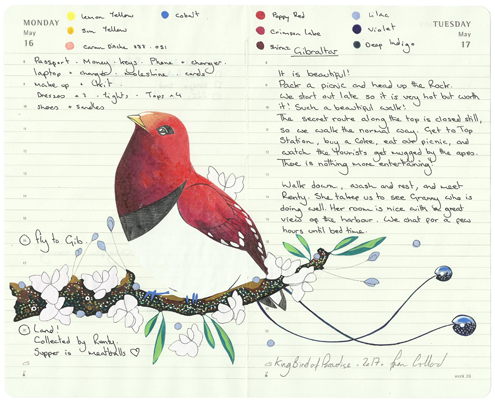 MONDAY
May
16
Lemon Yellow
Sun Yellow
Cobalt
Passport. Money. keys. Phone + charger.
laptop + changer. cards
make up + Chit
Dresses + 3. tights. Tops x 4
shoes + sandles
Fly to Gib.
Land!
Collected by Renty.
Supper is meatballs ♡
6
Poppy Red
Crimson Lake
Shiraz
Lilac
Violet
Deep Indigo
TUESDAY
May
17
Gibraltar
It is beautiful!
Pack a picnic and head up the Rock.
We start out late so it is very hot but worth
it! Such a beautiful walk!
The secret route along the top is closed still,
so we walk the normal way. Get to Top
Station, buy a Coke, eat our picnic, and
watch the tourists get mugged by the apes.
There is nothing more entertaining.
Walk down, wash and rest, and meet
Renty. She takes us to see Granny who is
doing well. Her room is nice with a great
view of the harbour. We chat for a few
hours until bed time.
King Bird of Paradise. 2017.
6
week 20